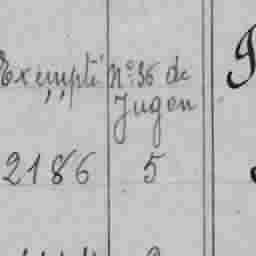 Exempți nº 36 de
Jugon
2186 5